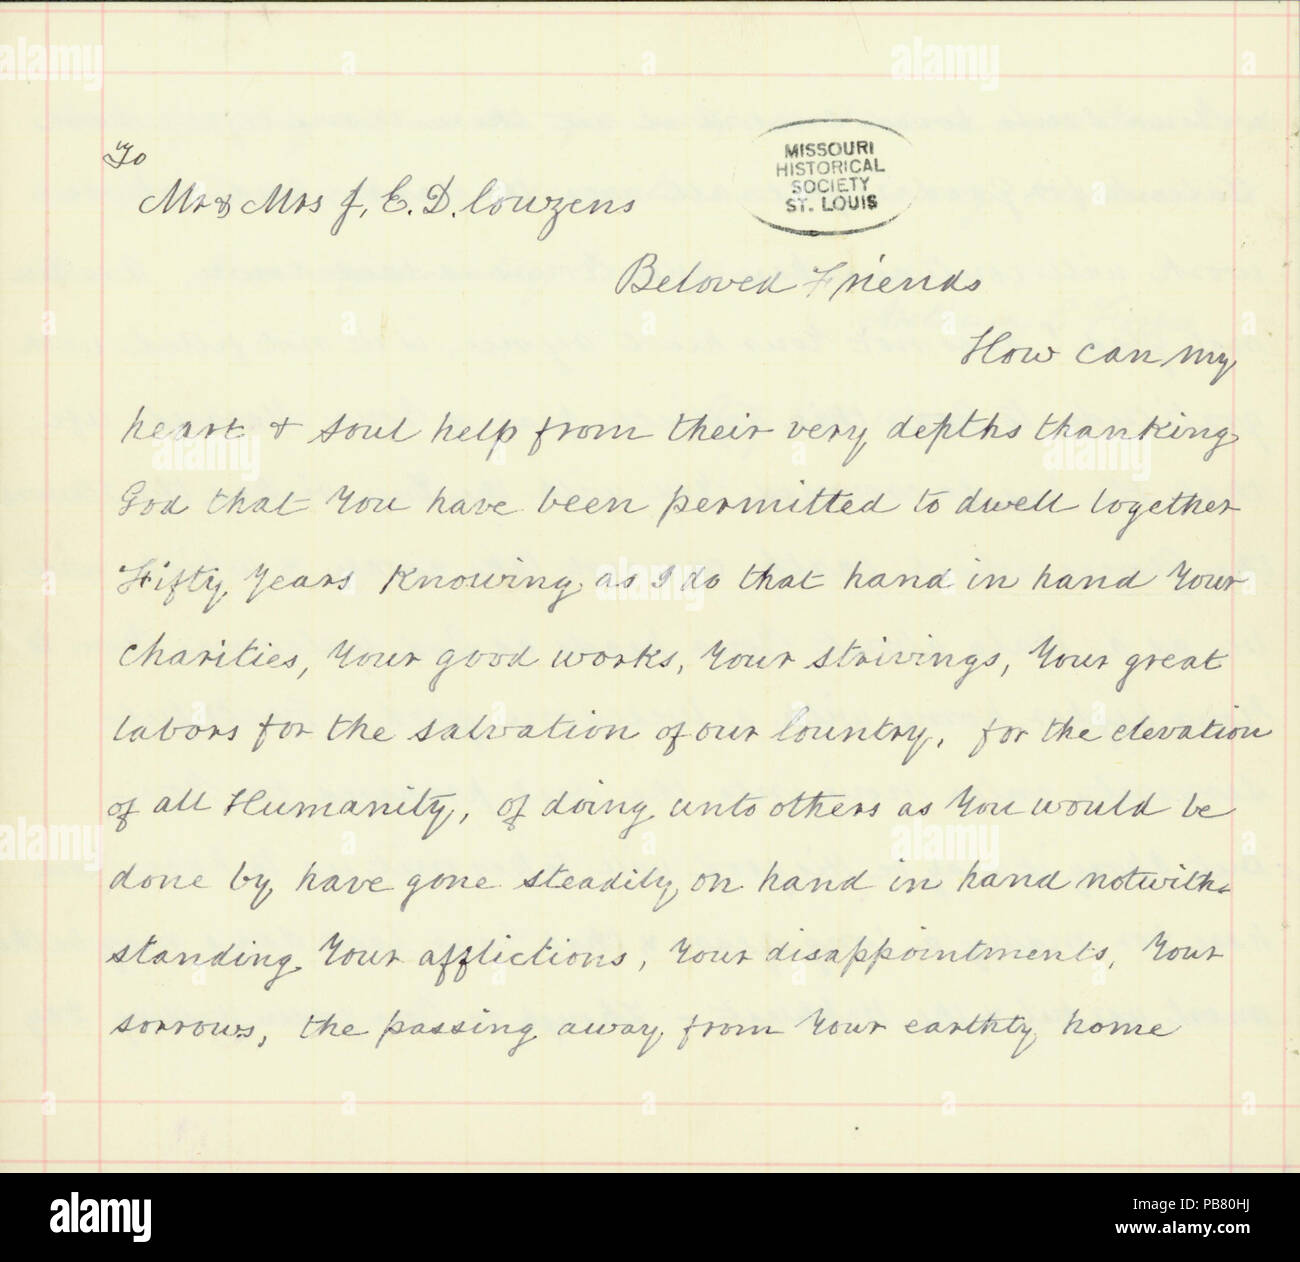 To
MISSOURI
HISTORICAL
SOCIETY
ST. LOUIS
Mr & Mrs J. E. D. Couzens
Beloved Friends
How can my
heart & soul help from their very depths thanking
God that You have been permitted to dwell together
Fifty Years Knowing as I do that hand in hand Your
charities, Your good works, Your strivings, Your great
labors for the salvation of our Country, for the elevation
of all Humanity, of doing unto others as You would be
done by, have gone steadily on hand in hand notwith-
standing Your afflictions, Your disappointments, Your
sorrows, the passing away from Your earthly home
alamy
PB80HJ
www.alamy.com